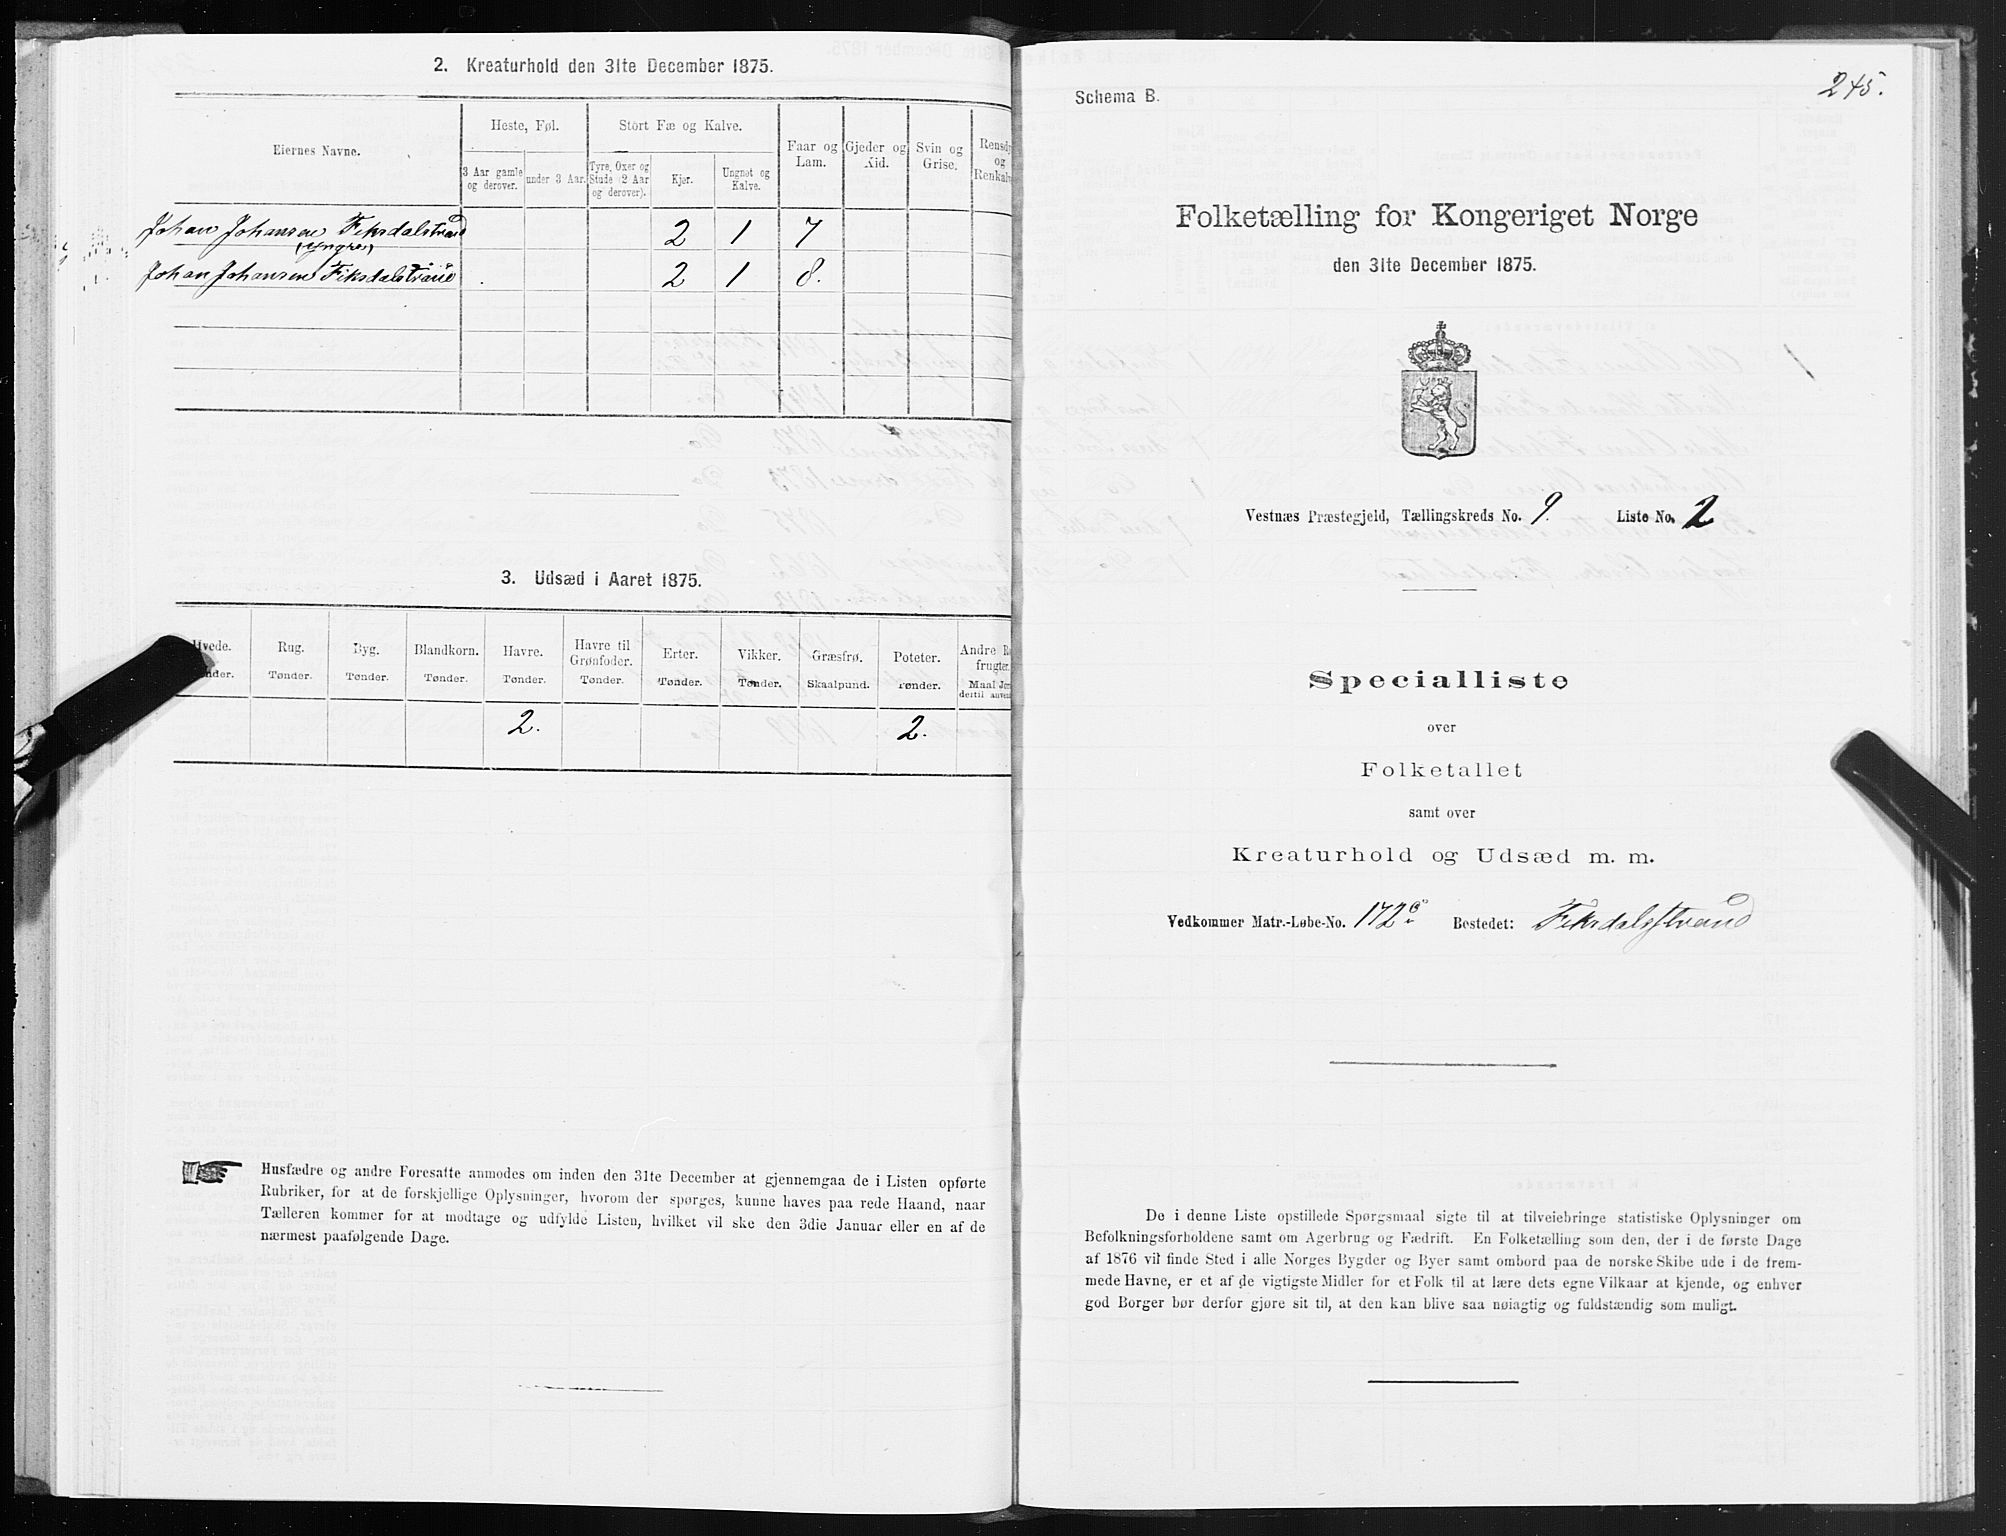 2. Kreaturhold den 31te December 1875.
Eiernes Navne.
Heste, Føl.
Stort Fæ og Kalve.
Faar og Lam.
Gjeder og Kid.
Svin og Grise.
og
3 Aar gamle og derover.
under 3 Aar.
Tyre, Oxer og Stude (2 Aar og derover).
Kjør.
Ungnøt og Kalve.
Johan Johansen Fiksdalstrand 2 1 7
(yngre)
Johan Johansen Fiksdalstrand 2 1 8.
3. Udsæd i Aaret 1875.
Hvede. Rug. Byg. Blandkorn. Havre. Havre til Grønfoder. Erter. Vikker. Græsfrø. Poteter. Andre
Tønder. Tønder. Tønder. Tønder. Tønder. Tønder. Tønder. Tønder. Skaalpund. Tønder.
2. 2.
Husfædre og andre Foresatte anmodes om inden den 31te December at gjennemgaa de i Listen opførte
Rubriker, for at de forskjellige Oplysninger, hvorom der spørges, kunne haves paa rede Haand, naar
Tælleren kommer for at modtage og udfylde Listen, hvilket vil ske den 3die Januar eller en af de
nærmest paafølgende Dage.
245.
Schema B.
Folketælling for Kongeriget Norge
den 31te December 1875.
Vestnæs Præstegjeld, Tællingskreds No. 9. Liste No. 2
Specialliste
over
Folketallet
samt over
Kreaturhold og Udsæd m. m.
Vedkommer Matr.-Løbe-No. 172 Bostedet: Fiksdalsstrand
De i denne Liste opstillede Spørgsmaal sigte til at tilveiebringe statistiske Oplysninger om
Befolkningsforholdene samt om Agerbrug og Fædrift. En Folketælling som den, der i de første Dage
af 1876 vil finde Sted i alle Norges Bygder og Byer samt ombord paa de norske Skibe ude i de frem-
mede Havne, er et af de vigtigste Midler for et Folk til at lære dets egne Vilkaar at kjende, og enhver
god Borger bør derfor gjøre sit til, at den kan blive saa nøiagtig og fuldstændig som muligt.